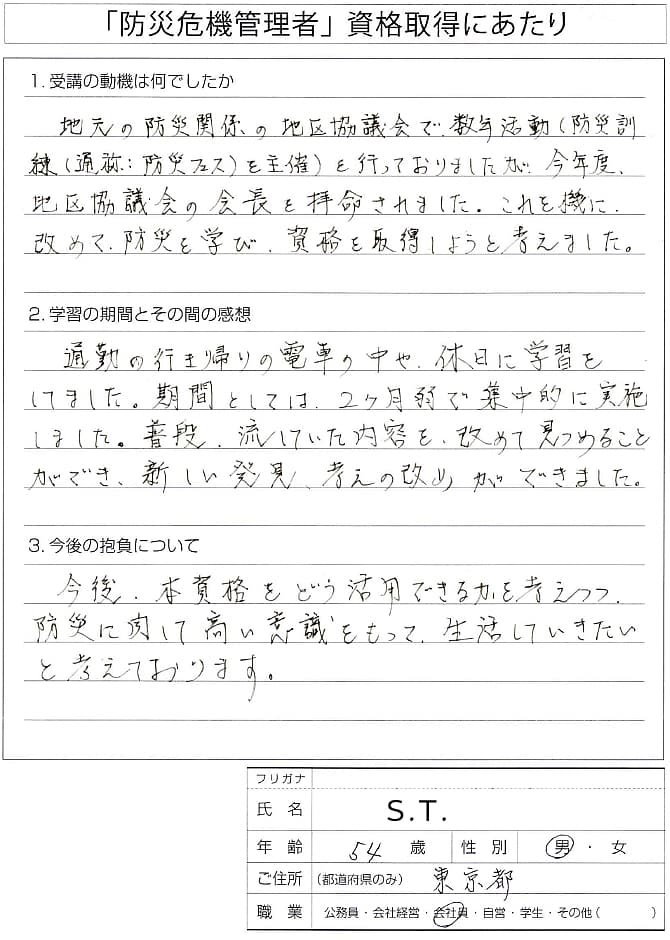 「防災危機管理者」資格取得にあたり
1.受講の動機は何でしたか
地元の防災関係の地区協議会で、数年活動(防災訓
練(通称:防災フェス)を主催)を行っておりましたが、今年度、
地区協議会の会長を拝命されました。これを機に、
改めて、防災を学び、資格を取得しようと考えました。
2.学習の期間とその間の感想
通勤の行き帰りの電車の中や、休日に学習を
してました。期間としては、2ヶ月弱で集中的に実施
しました。普段、流していた内容を、改めて見つめること
ができ、新しい発見、考えの改めができました。
3.今後の抱負について
今後、本資格をどう活用できるかを考えつつ、
防災に関して高い意識をもって、生活していきたい
と考えております。
フリガナ
氏名 S.T.
年齢 54 歳 性別 男・女
ご住所 (都道府県のみ) 東京都
職業 公務員・会社経営・会社員・自営・学生・その他( )